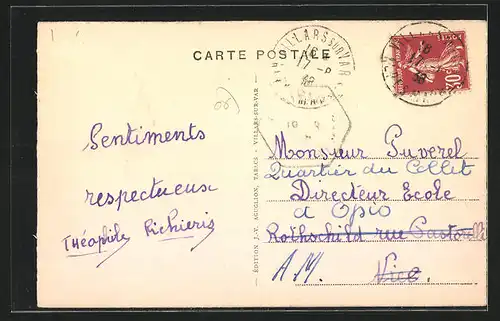 CARTE POSTALE
VILLARS SUR VAR
Sentiments
respectueux
Théophile Richieris
ÉDITION J.-V. AGUGLION, TABACS - VILLARS-SUR-VAR -
Monsieur Puverel
Quartier du Collet
Directeur Ecole
à Opio
Rothschild rue Pastorelli
A.M. Nice